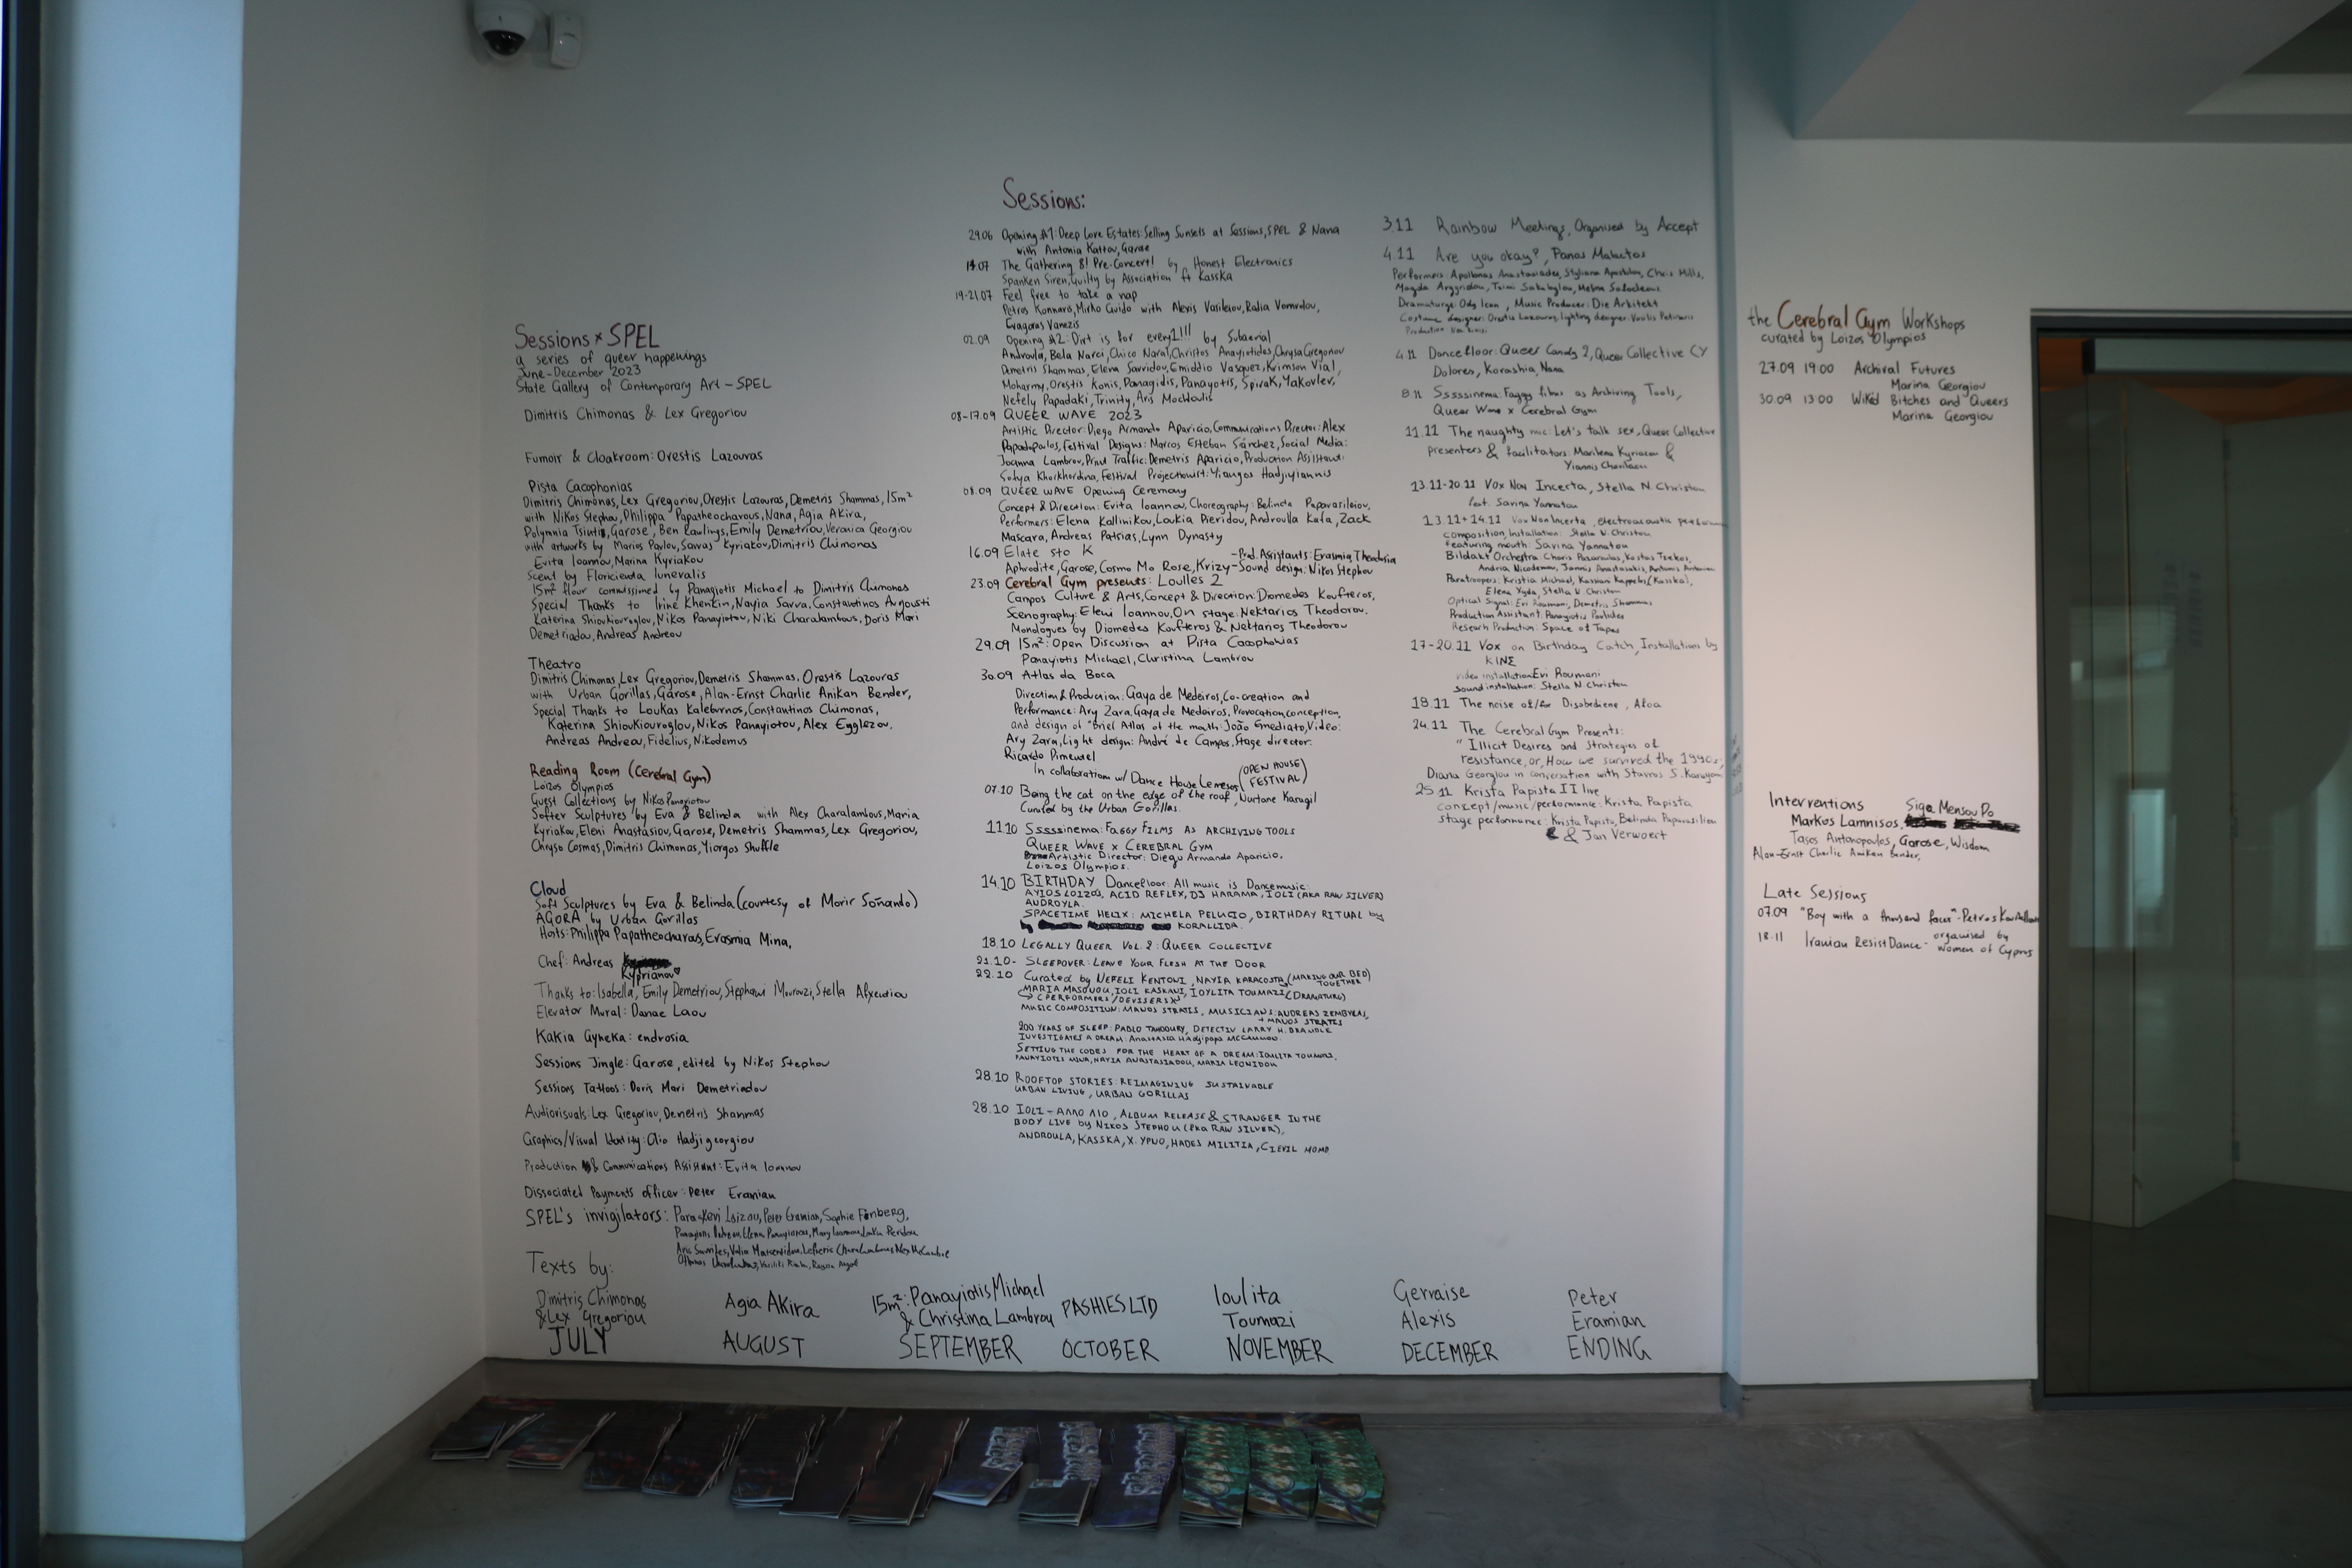 Sessions × SPEL
a series of queer happenings
June - December 2023
State Gallery of Contemporary Art - SPEL
Dimitris Chimonas & Lex Gregoriou
Fumoir & Cloakroom: Orestis Lazouras
Pista Cacophonias
Dimitris Chimonas, Lex Gregoriou, Orestis Lazouras, Demetris Shammas, 15m²
with Nikos Stephou, Philippa Papatheocharous, Nana, Agia Akira,
Polymnia Tsintis, Garose, Ben Rawlings, Emily Demetriou, Veronica Georgiou
with artworks by Marios Pavlou, Savvas Kyriakou, Dimitris Chimonas
Evita Ioannou, Marina Kyriakou
Scent by Floricienta Iunevalis
15m² flour commissioned by Panagiotis Michael to Dimitris Chimonas
Special Thanks to Irine Khenkin, Nayia Savva, Constantinos Avgousti
Katerina Shioukiouroglou, Nikos Panayiotou, Niki Charalambous, Doris Mari
Demetriadou, Andreas Andreou
Theatro
Dimitris Chimonas, Lex Gregoriou, Demetris Shammas, Orestis Lazouras
with Urban Gorillas, Garose, Alan-Ernst Charlie Anikan Bender,
Special Thanks to Loukas Kalebrnos, Constantinos Chimonas,
Katerina Shioukiouroglou, Nikos Panayiotou, Alex Egglezou,
Andreas Andreou, Fidelius, Nikodemus
Reading Room (Cerebral Gym)
Loizos Olympios
Guest Collections by Nikos Panayiotou
Softer Sculptures by Eva & Belinda with Alex Charalambous, Maria
Kyriakou, Eleni Anastasiou, Garose, Demetris Shammas, Lex Gregoriou,
Chryso Cosmas, Dimitris Chimonas, Yiorgos Shuffle
Cloud
Soft Sculptures by Eva & Belinda (courtesy of Morir Soñando)
AGORA by Urban Gorillas
Hosts: Philippa Papatheocharous, Erasmia Mina,
Chef: Andreas
Kyprianou
Thanks to: Isabella, Emily Demetriou, Stephani Mourouzi, Stella Afxentiou
Elevator Mural: Danae Laou
Kakia Gyneka: endrosia
Sessions Jingle: Garose, edited by Nikos Stephou
Sessions Tattoos: Doris Mari Demetriadou
Audiovisuals: Lex Gregoriou, Demetris Shammas
Graphics/Visual Identity: Clio Hadjigeorgiou
Production & Communications Assistant: Evita Ioannou
Dissociated Payments officer: Peter Eramian
SPEL's invigilators: Paraskevi Loizou, Peter Eramian, Sophie Finberg,
Texts by:
Dimitris Chimonas
& Lex Gregoriou
JULY
Agia Akira
AUGUST
15m²: Panayiotis Michael
& Christina Lambrou
SEPTEMBER
PASHIES LTD
OCTOBER
Ioulita
Toumazi
NOVEMBER
Gervaise
Alexis
DECEMBER
Peter
Eramian
ENDING
Sessions:
29.06 Opening #1: Deep Love Estates: Selling Sunsets at Sessions, SPEL & Nana
with Antonia Kattou, Garose
14.07 The Gathering 8! Pre-Concert! by Honest Electronics
Spanken Siren, Guilty by Association ft Kasska
19-21.07 Feel free to take a nap
Petros Konnaris, Mirko Guido with Alexis Vasileiou, Ralia Vomvolou,
Evagoras Vanezis
02.09 Opening #2: Dirt is for every1!!! by Subaerial
Androula, Bela Narci, Chico Naral, Christos Anayiotides, Chrysa Gregoriou
Demetris Shammas, Elena Savvidou, Emiddio Vasquez, Krimson Vial,
Moharmy, Orestis Konis, Panagidis, Panayotis, Spirak, Yakovlev,
Nefely Papadaki, Trinity, Aris Mochloulis
08-17.09 QUEER WAVE 2023
Artistic Director: Diego Armando Aparicio, Communications Director: Alex
Papadopoulos, Festival Designs: Marcos Esteban Sánchez, Social Media:
Joanna Lambrou, Print Traffic: Demetris Aparicio, Production Assistant:
Sofya Khorkhordina, Festival Projectionist: Yiangos Hadjiyiannis
08.09 QUEER WAVE Opening Ceremony
Concept & Direction: Evita Ioannou, Choreography: Belinda Papavasileiou,
Performers: Elena Kallinikou, Loukia Pieridou, Androulla Kafa, Zack
Mascara, Andreas Patsias, Lynn Dynasty
16.09 Elate sto K - Prod. Assistants: Erasmia, Theodoria
Aphrodite, Garose, Cosmo Mo Rose, Krizy - Sound design: Nikos Stephou
23.09 Cerebral Gym presents: Loulles 2
Campos Culture & Arts, Concept & Direction: Diomedes Koufteros,
Scenography: Eleni Ioannou, On stage: Nektarios Theodorou.
Monologues by Diomedes Koufteros & Nektarios Theodorou
29.09 15m²: Open Discussion at Pista Cacophonias
Panayiotis Michael, Christina Lambrou
30.09 Atlas da Boca
Direction & Production: Gaya de Medeiros, Co-creation and
Performance: Ary Zara, Gaya de Medeiros, Provocation, conception,
and design of "Brief Atlas of the mouth: João Emediato, Video:
Ary Zara, Light design: André de Campos, Stage director:
Ricardo Pimentel
In collaboration w/ Dance House Lemesos (OPEN HOUSE FESTIVAL)
07.10 Being the cat on the edge of the roof, Nurtane Karagil
Curated by the Urban Gorillas.
11.10 Sssssinema: FAGGY FILMS AS ARCHIVING TOOLS
QUEER WAVE x CEREBRAL GYM
Artistic Director: Diego Armando Aparicio,
Loizos Olympios.
14.10 BIRTHDAY Dancefloor: All music is Dancemusic:
AYIOS LOIZOS, ACID REFLEX, DJ HARAMA, IOLI (AKA RAW SILVER)
AUDROYLA.
SPACETIME HELIX: MICHELA PELUCIO, BIRTHDAY RITUAL by
KORALLIDA.
18.10 LEGALLY QUEER VOL. 2: QUEER COLLECTIVE
21.10- SLEEPOVER: LEAVE YOUR FLESH AT THE DOOR
22.10 Curated by NEFELI KENTONI, NAYIA KARACOSTA (MAKING OUR BED TOGETHER)
MARIA MASONOU, IOLI KASKANI, IOYLITA TOUMAZI (DRAMATURG)
(PERFORMERS/DEVISERS)
MUSIC COMPOSITION: MANOS STRATIS, MUSICIANS: AUDREAS ZEMBYLAS,
+ MANOS STRATIS
200 YEARS OF SLEEP: PABLO TAHDOURY, DETECTIV LARRY H. BRAMBLE
INVESTIGATES A DREAM: Anastasia Hadjipapa McCammon
SETTING THE CODES FOR THE HEART OF A DREAM: IOULITA TOUMAZI,
PANAYIOTIS MINA, NAYIA ANASTASIADOU, MARIA LEONIDOU
28.10 ROOFTOP STORIES: REIMAGINING SUSTAINABLE
URBAN LIVING, URBAN GORILLAS
28.10 IOLI - ΑΠΠΟ ΛΙΟ, ALBUM RELEASE & STRANGER IN THE
BODY LIVE by NIKOS STEPHOU (AKA RAW SILVER),
ANDROULA, KASSKA, X.YPNO, HADES MILITIA, CIEVIL MOMO
3.11 Rainbow Meetings, Organised by Accept
4.11 Are you okay?, Panos Malactos
Performers: Apollonas Anastasiades, Styliana Apostolou, Chris Mills,
Magda Argyridou,
Dramaturge: Ody Icon, Music Producer: Die Arkitekt
Costume designer: Orestis Lazouras, lighting designer: Vasilis Petinaris
4.11 Dancefloor: Queer Candy 2, Queer Collective CY
Dolores, Korashia, Nana
8.11 Sssssinema: Faggy films as Archiving Tools,
Queer Wave x Cerebral Gym
11.11 The naughty mic: Let's talk sex, Queer Collective
presenters & facilitators: Marilena Kyriacou &
Yiannis Charilaou
13.11-20.11 Vox Non Incerta, Stella N. Christou
feat. Savina Yannatou
13.11+14.11 Vox Non Incerta, electroacoustic
composition, Installation: Stella N. Christou
featuring mouth: Savina Yannatou
Bildakt Orchestra: Charis Kostas Tsekos,
Andria Nicodemou, Jannis Anastasakis, Antonis Antoniou
Paratroopers: Kristia Michael, Kassiani Kappelos (Kasska),
Elena Xyda, Stella N Christou
Optical Signal: Evi Roumani, Demetris Shammas
Production Assistant: Panayiotis Pavlides
Research Production: Space of Tapes
17-20.11 Vox on Birthday Catch, Installations by
KINE
video installation: Evi Roumani
Sound installation: Stella N Christou
18.11 The noise of/for Disobediene, Afoa
24.11 The Cerebral Gym Presents:
"Illicit Desires and strategies of
resistance, or, How we survived the 1990s,
Diana Georgiou in conversation with Stavros S. Karayanni
25.11 Krista Papista II live
concept/music/performance: Krista Papista
stage performance: Krista Papista, Belinda Papavasileiou
& Jan Verwoert
the Cerebral Gym Workshops
curated by Loizos Olympios
27.09 19:00 Archival Futures
Marina Georgiou
30.09 13:00 Wikid Bitches and Queers
Marina Georgiou
Interventions Siga Mensou Po
Markos Lamnisos,
Tasos Antonopoulos, Garose, Wisdom
Alan-Ernst Charlie Anikan Bender,
Late Sessions
07.09 "Boy with a thousand faces" - Petros
18.11 Iranian ResistDance - organised by
women of Cyprus